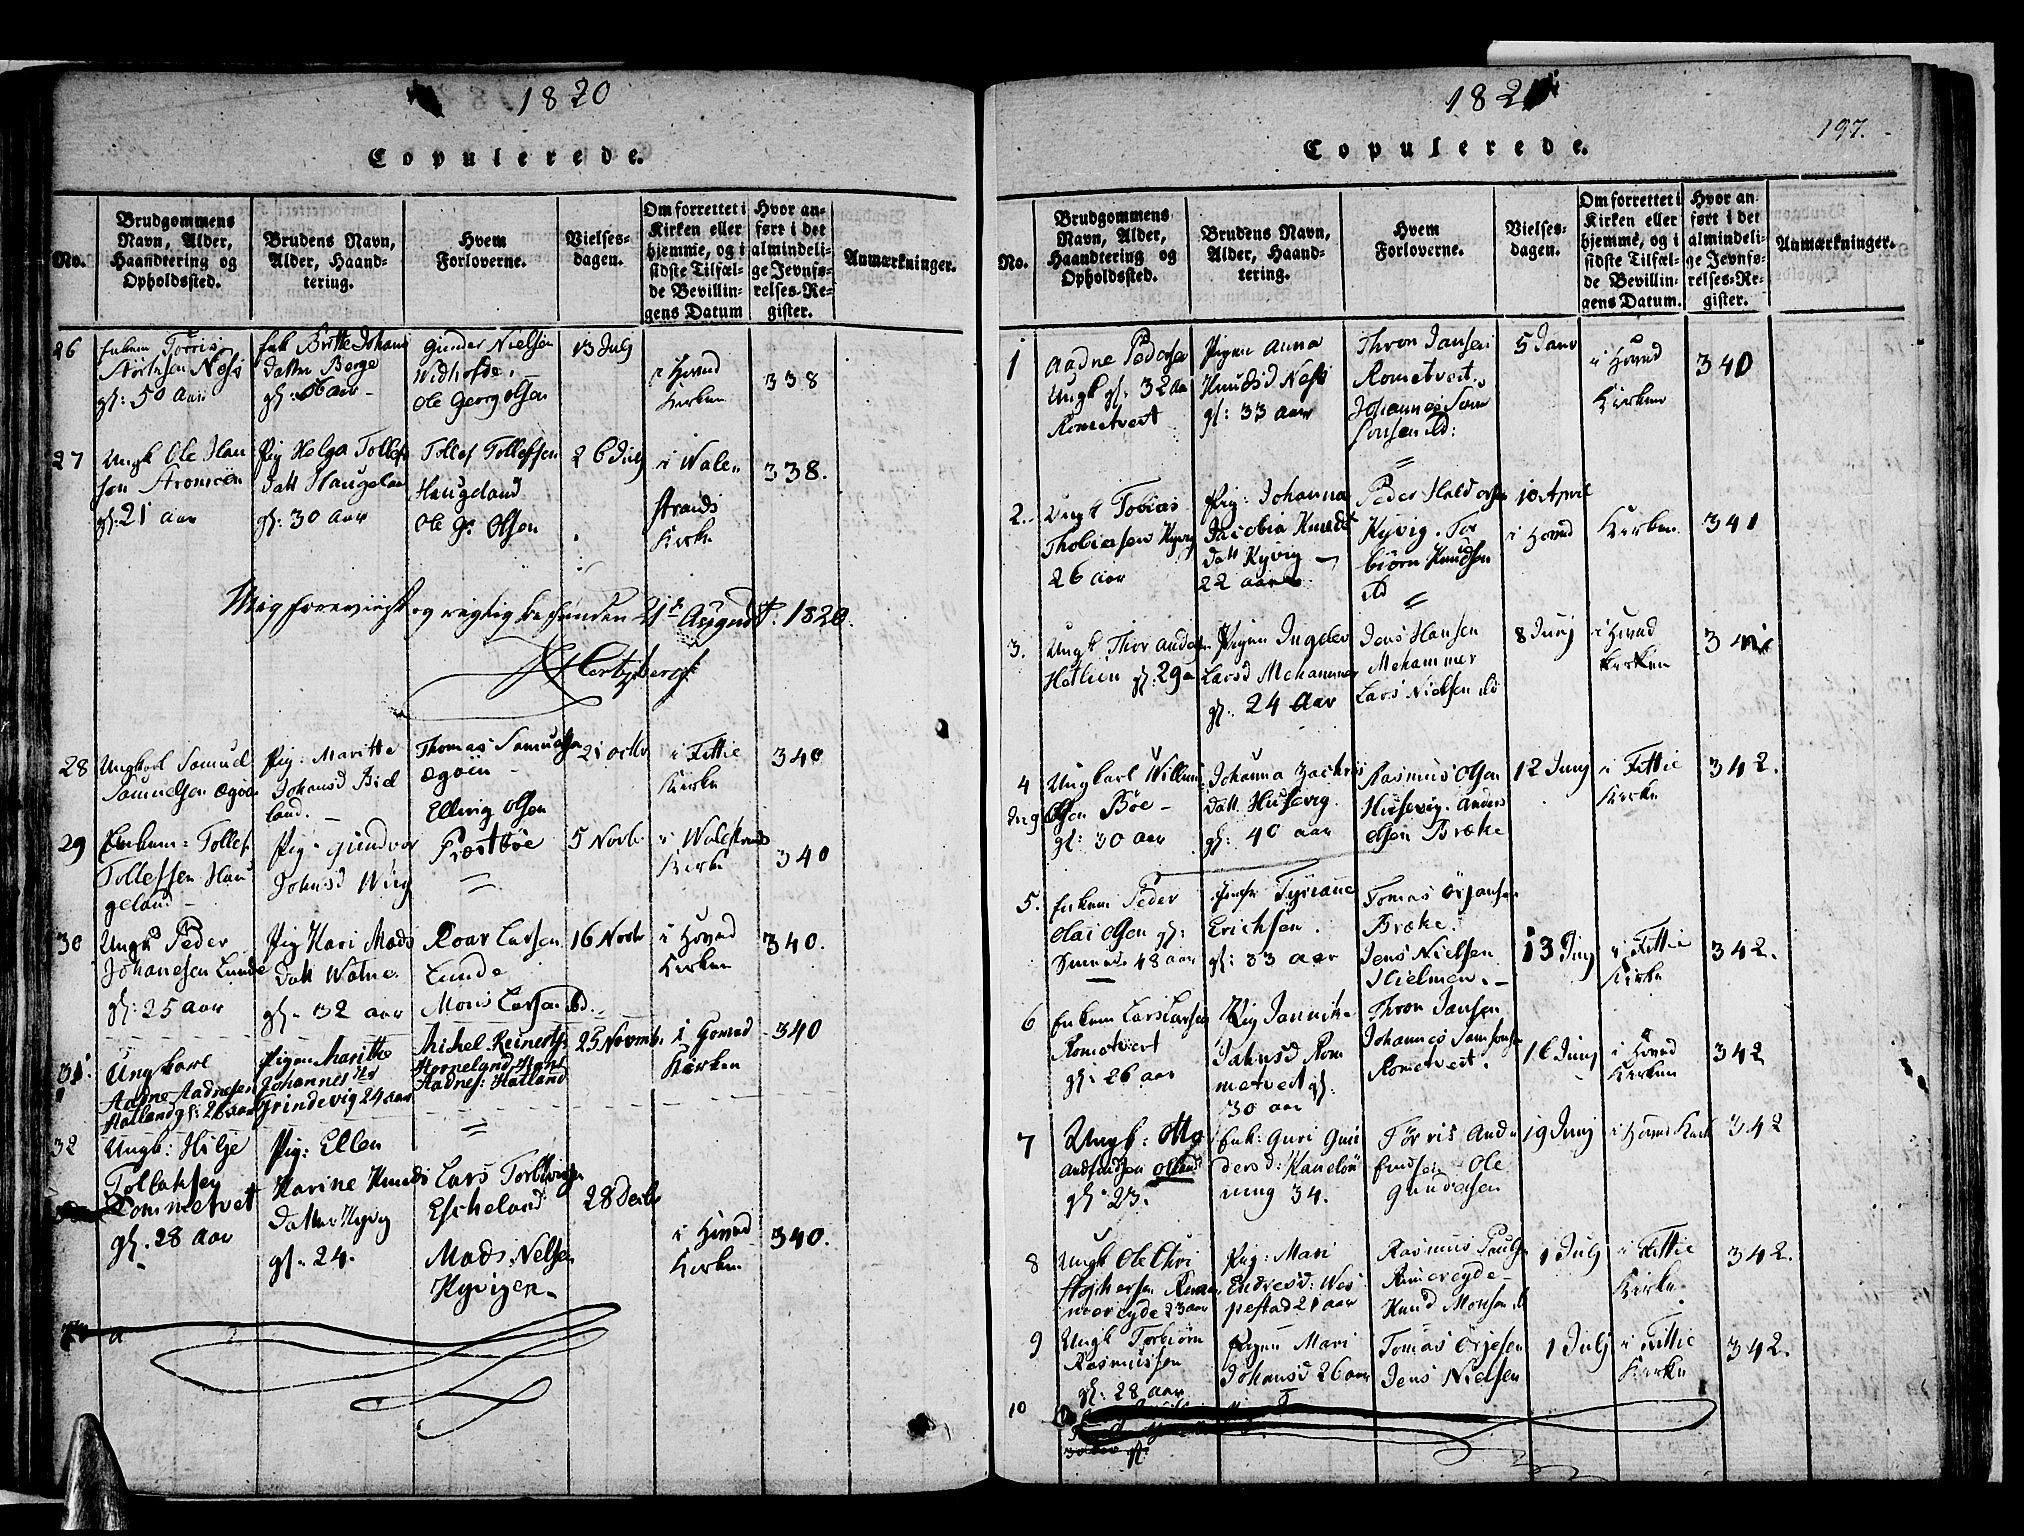 1820
Copulerede.
No.
Brudgommens
Navn, Alder,
Haandtering og
Opholdssted.
Brudens Navn,
Alder, Haand-
tering.
Hvem
Forloverne.
Vielses-
dagen.
Om forrettet i
Kirken eller
hjemme, og i
sidste Tilfæl-
de Bevillin-
gens Datum
Hvor an-
ført i det
almindeli-
ge Jevnfø-
relses-Re-
gister.
Anmærkninger.
26
Enkem Torris
Ness
gl: 50 Aar
Enk Britte Johans
Datter Berge
gl: aar
Gunder Nielsen
Ole Georg Olsen
13 July
i Hoved
Kirken
338
27
Ungk Ole Han
sen
gl: 21 aar
Pig Helga Tollef
datt Haugelan
gl: 30 Aar
Tollef Tollefsen
Haugeland
Ole G. Olsen
26 July
i Walen
strands
Kirke
338.
Mig foreviist og rigtig befunden 21 August. 1820.
Hertzberg
28
Ungkarl Samuel
Samuelsen Øgøen
Pig: Maritte
Johansd Biel
land.
Thomas Samuelsen
Øgøen
Ellwig Olsen
21 octbr
i Fittie
Kirke
340
29
Enkem: Tollef
Tollefsen Hau
geland
Pig: Gundvor
Johnsd Wiig
Præstbøe
5 Novb
i Walestrands
Kirke
340
30
Ungk Peder
Johanesen Lunde
gl: 25 aar
Pig Kari Mads
Datt Watne
gl. 32 aar
Roar Larsen
Lunde
Mons Larsen
16 Novbr
i Hoved
Kirken
340.
31:
Ungkarl
Aadne Aadnesen
Hatland gl: 26 aar
Pigen Maritte
Johannes
Grindevig 24 aar
Michel Reinerts
Horneland
Aadnes: Hatland
25 Novemb.
i Hoved
Kirken
340
32
Ungk: Hilje
Tollaksen
Rommetvet
gl. 28 aar
Pig: Ellen
Karine Knuds
Datter Kyvig
gl. 24.
Lars
Escheland
Mads Nelsen
Kyvigen
28 Decbr
i Hoved
Kirken
340.
1821
197.
Copulerede.
No.
Brudgommens
Navn, Alder,
Haandtering og
Opholdssted.
Brudens Navn,
Alder, Haand-
tering.
Hvem
Forloverne.
Vielses-
dagen.
Om forrettet i
Kirken eller
hjemme, og i
sidste Tilfæl-
de Bevillin-
gens Datum.
Hvor an-
ført i det
almindeli-
ge Jevnfø-
relses-Re-
gister.
Anmærkninger.
1
Aadne Pedersen
Ungk gl: 32 aa
Rometvert
Pigen Anna
Knudsd Ness
gl: 33 aar
Thron Jansen
Rometvert.
Johannes Sam
sonsen ibd:
5 Janr
i Hoved
Kirken
340
2.
Ungk Tobias
Thobiesen Kyvig
26 aar
Pig: Johanna
Jacobia Knuds
datt Kyvig
22 aar
Peder Haldorsen
Kyvig. Tor
biørn Knudsen
ibd
10 April
i Hoved
Kirken
341
3.
Ungk Thor Anders
gl: 29 a
Pigen Ingebor
Larsd Mehammer
gl. 24 Aar
Jens Hansen
Mehammer
Lars Nielsen ibd
8 Junj
i Hoved
Kirken
4
Ungkarl Willum
Olsen Bøe
gl: 30 aar
Johanna Zachris
datt Husevig.
gl: 40 aar
Rasmus Olsen
Husevig. Anders
Olsen Bræke
12 Junj
i Fittie
Kirke
342.
5.
Enkem Peder
Olai Olsen gl:
48 aar
Jomfr
Erichsen.
gl: 33 aar
Tomas
Bræke.
Jens Nielsen
13 Junj
i Fittie
Kirke
342.
6
Enkem Lars Larsen
Rometvert
gl: 26 aar
Pig Jannik
Jahnsd Rom
metvert gl:
30 aar
Thron Jansen
Johannes Samsonsen
Rometvert.
16 Junj
i Hoved
Kirken
342
7
Ungk: Otto
gl: 23.
Enk: Guri Gun
dersd:
ning 34.
Tørris
Ole
Gundersen
19 Junj
i Hoved Kirk
342
8
Ungk Ole Chri
stophersen
23 aar
Pig: Mari
Endresd: Wes
pestad 21 aar
Rasmus Pouls
Rimereyde
Knud Monsen ibd
1 July
i Fittie
Kirke.
342.
9
Ungk Torbiørn
Rasmussen
gl: 28 aar
Pigen Mari
Johansd 26 aar
Tomas
Jens Nielsen
1 July
i Fittie
Kirke
342.
10